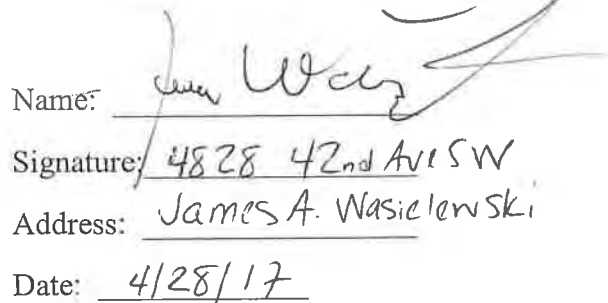 Name:
Signature: 4828 42nd Ave SW
Address: James A. Wasielewski
Date: 4/28/17